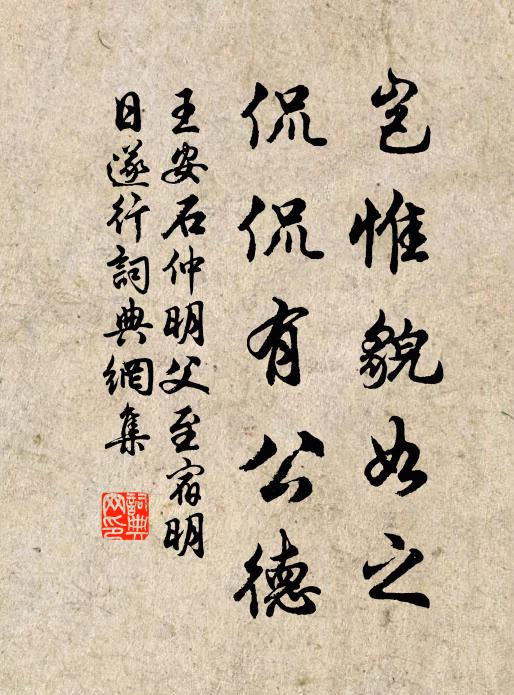 豈惟貌如之
侃侃有公德
王安石仲明父至宿明
日遂行詞典網集
詞典网印